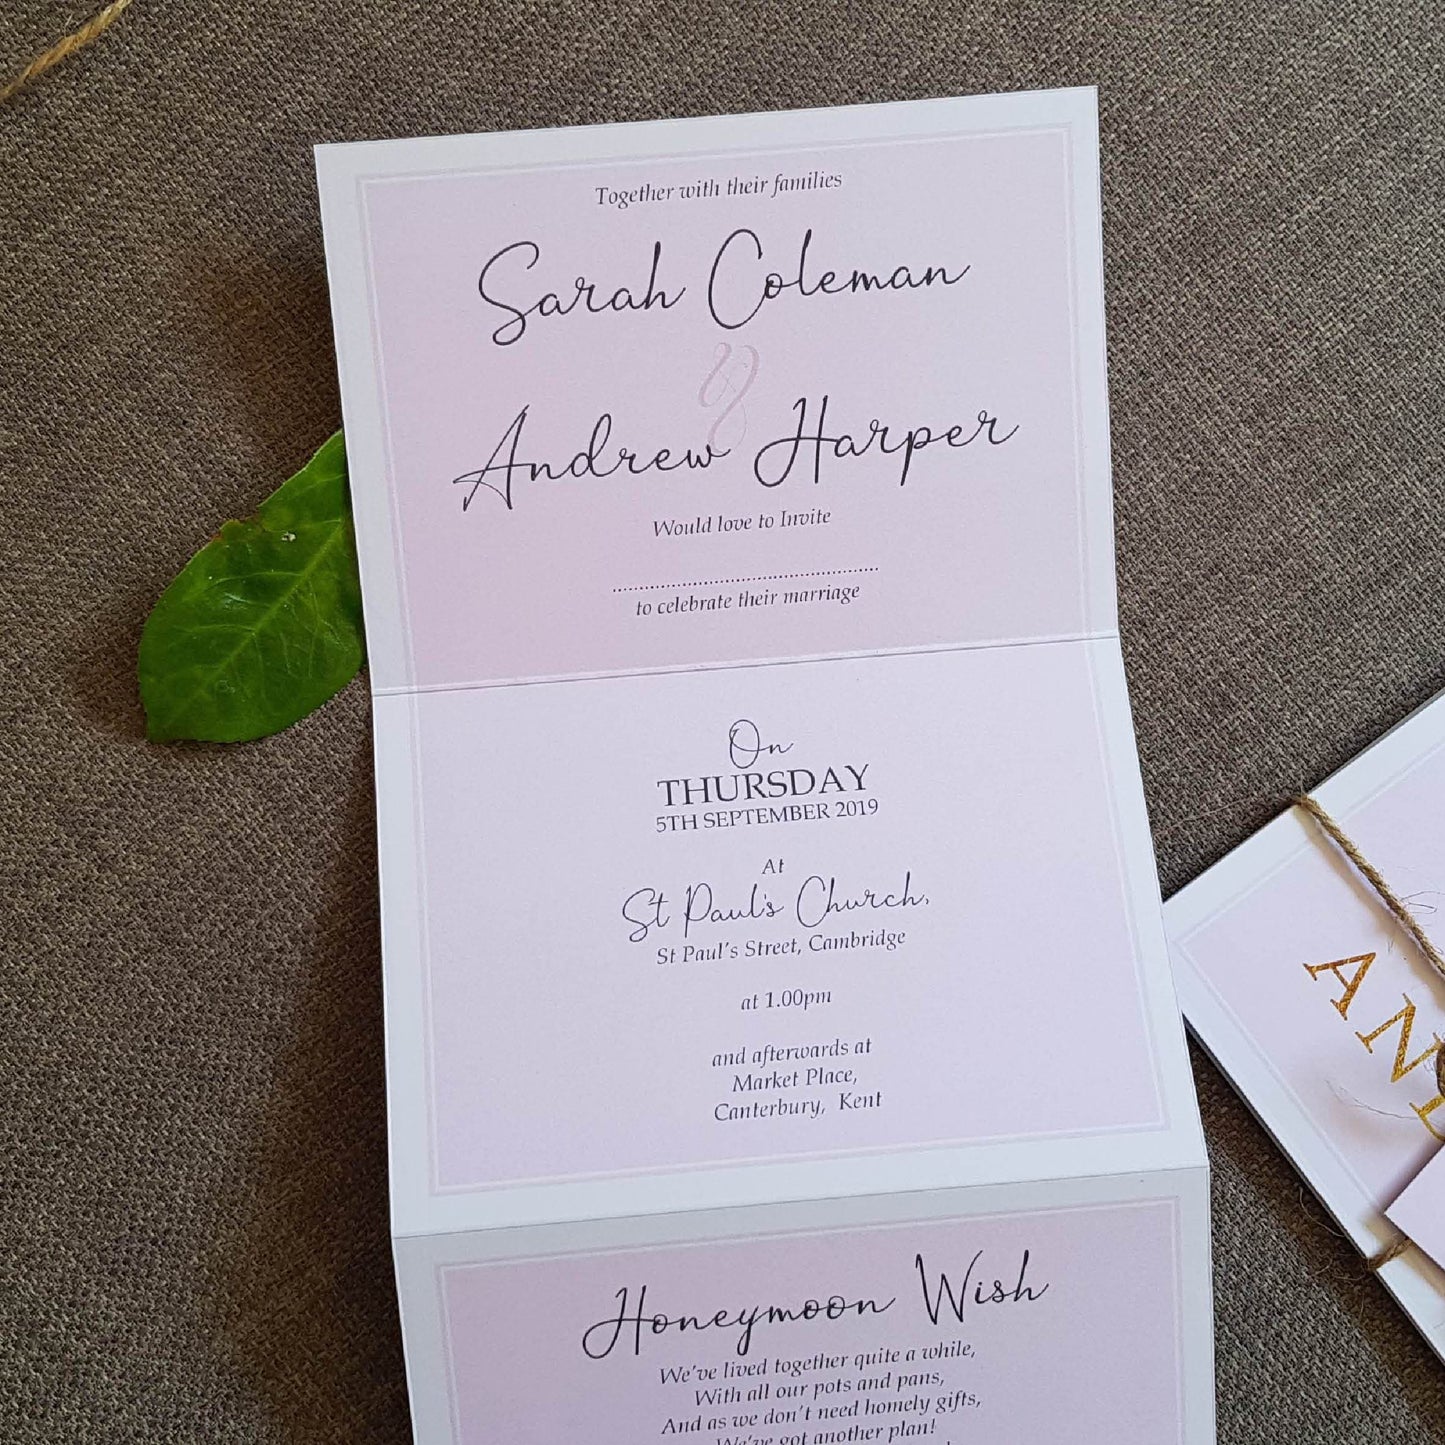 Together with their families
Sarah Coleman
&
Andrew Harper
Would love to Invite
..................................................
to celebrate their marriage
On
THURSDAY
5TH SEPTEMBER 2019
At
St Paul's Church,
St Paul's Street, Cambridge
at 1.00pm
and afterwards at
Market Place,
Canterbury, Kent
Honeymoon Wish
We've lived together quite a while,
With all our pots and pans,
And as we don't need homely gifts,
We've got another plan!